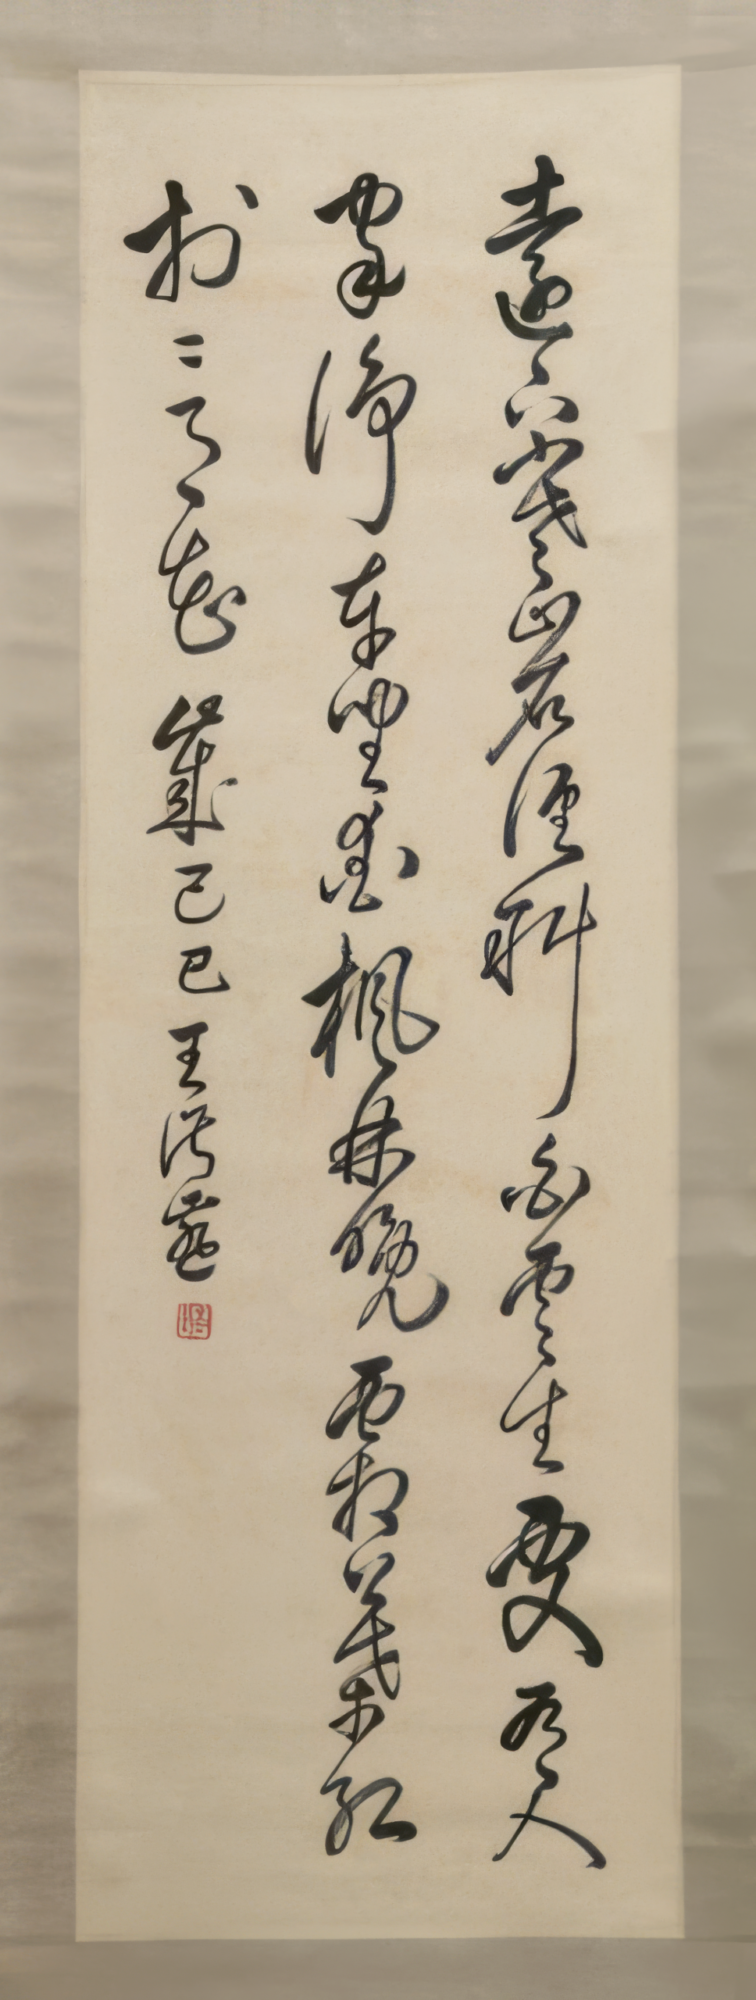 遠上寒山石徑斜白雲生處有人
家停車坐愛楓林晚霜葉紅
於二月花 歲己巳王